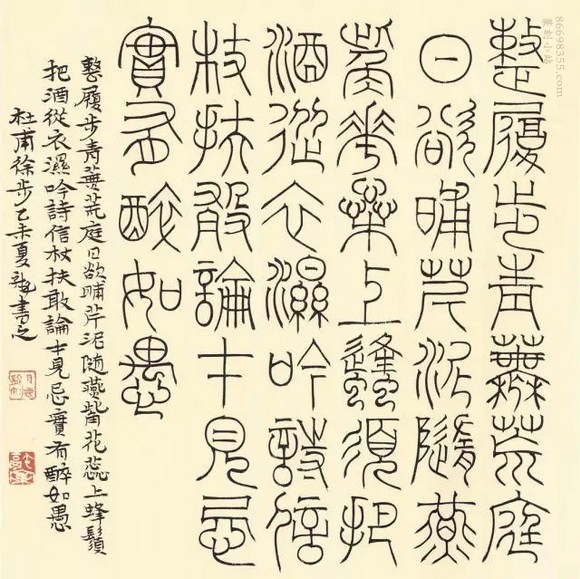 整履步青蕪荒庭
日欲晡芹泥隨燕
觜花蕊上蠭須把
酒從衣濕吟詩信
杖扶敢論才見忌
實有醉如愚
整履步青蕪荒庭日欲晡芹泥随燕觜花蕊上蜂鬚
把酒從衣濕吟詩信杖扶敢論才見忌實有醉如愚
杜甫徐步乙未夏書之
86698355.com